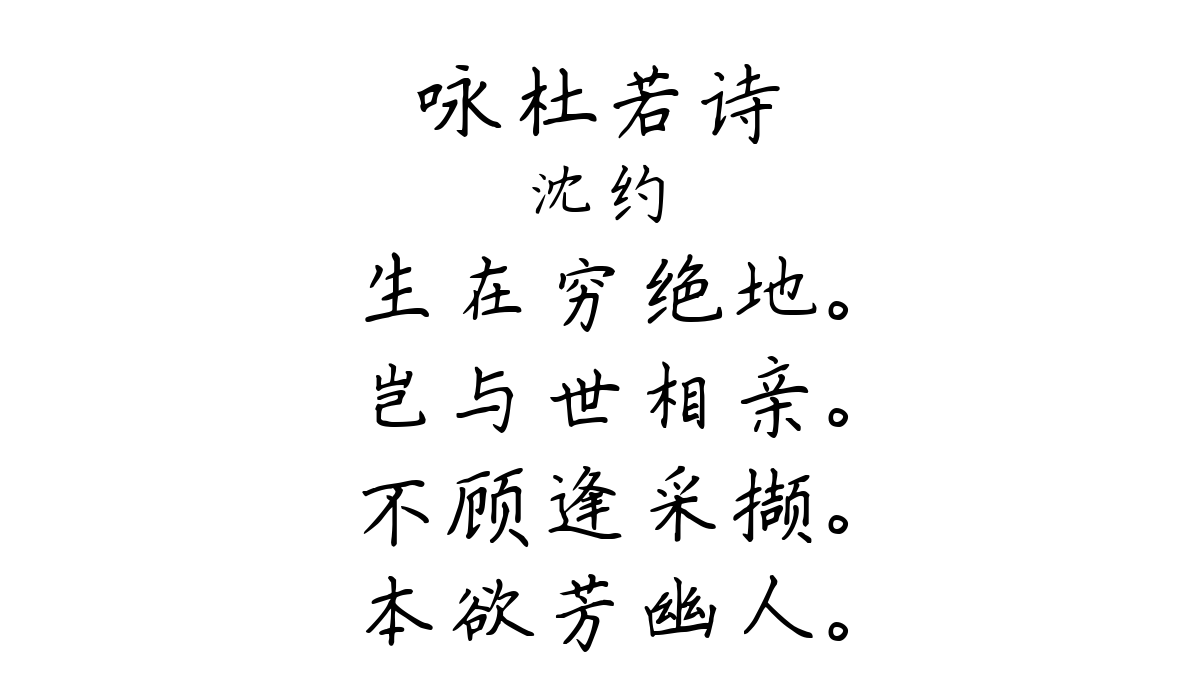 咏杜若诗
沈约
生在穷绝地。
岂与世相亲。
不顾逢采撷。
本欲芳幽人。